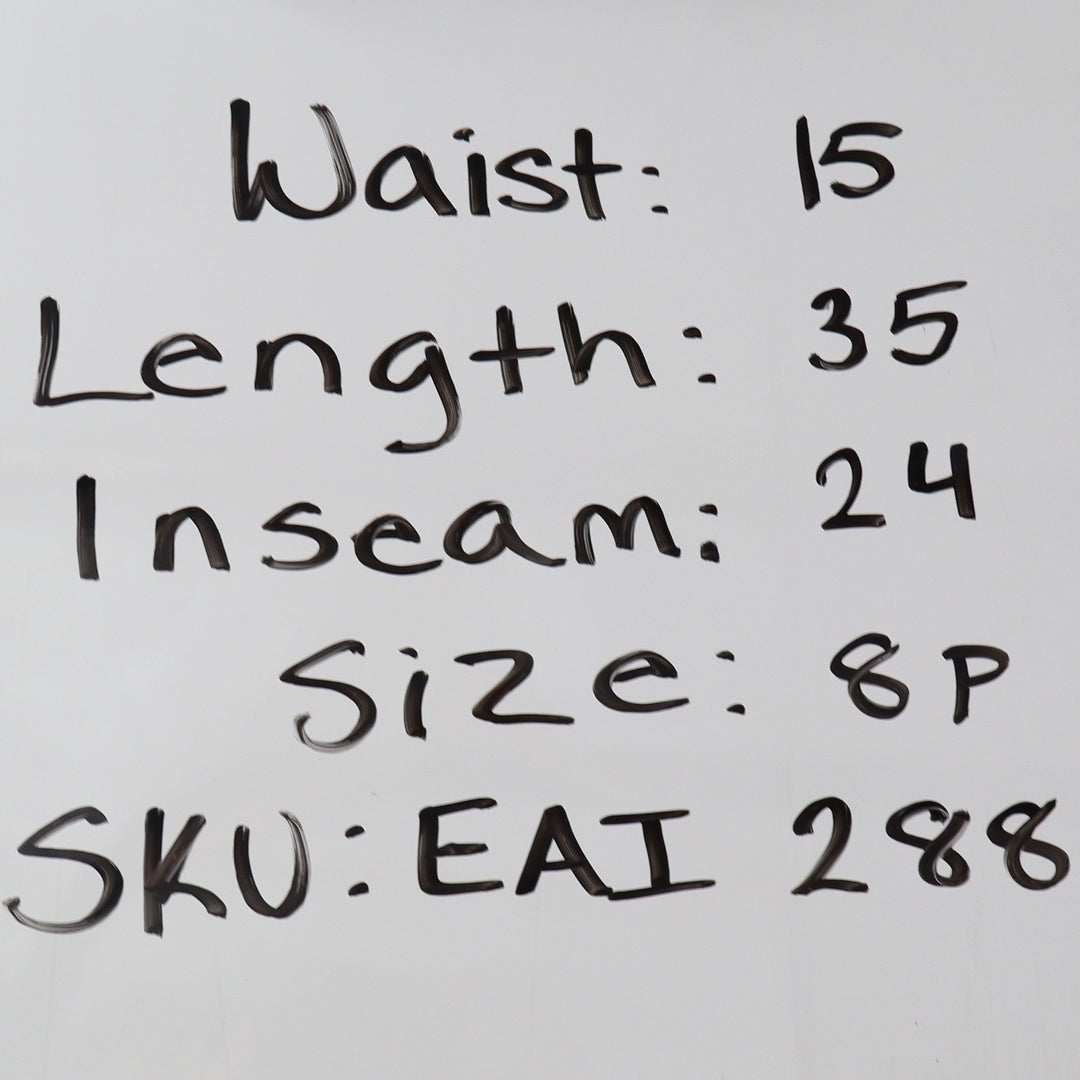 Waist: 15
Length: 35
Inseam: 24
Size: 8P
SKU: EAI 288